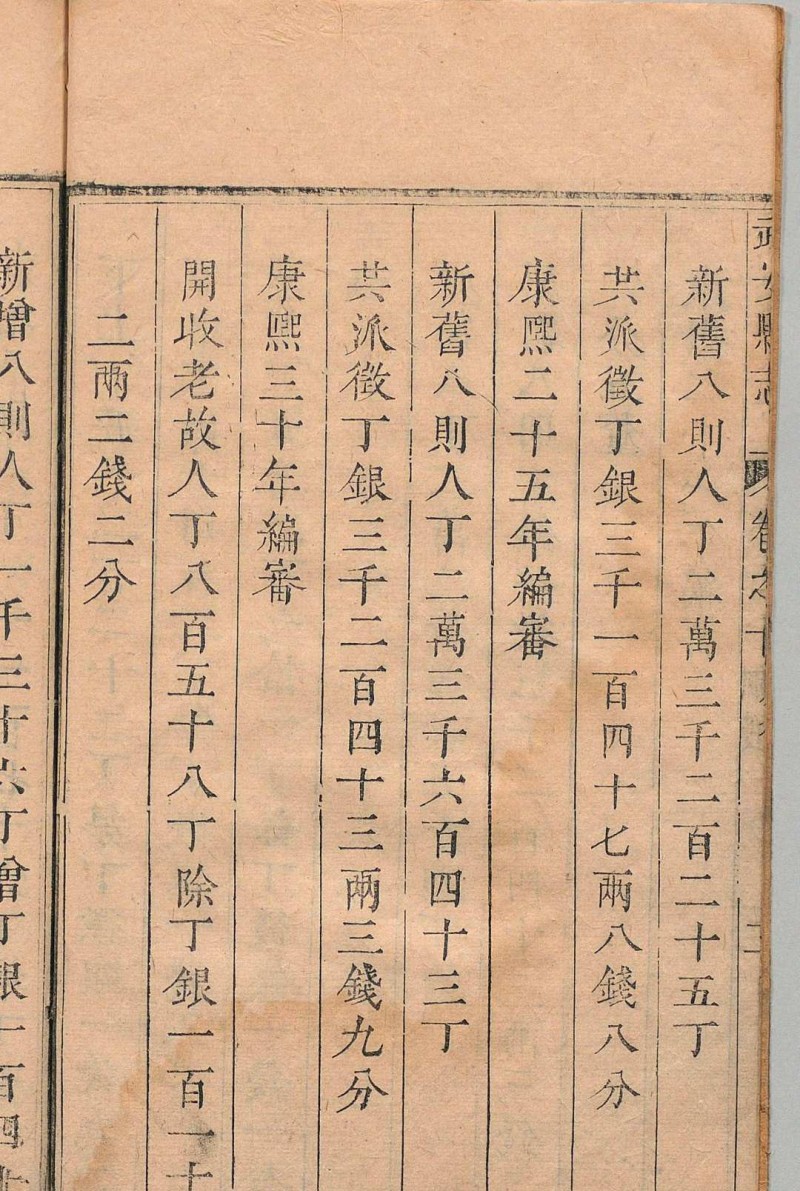 武安縣志 卷之十
新舊八則人丁二萬三千二百二十五丁
共派徵丁銀三千一百四十七兩八錢八分
康熙二十五年編審
新舊八則人丁二萬三千六百四十三丁
共派徵丁銀三千二百四十三兩三錢九分
康熙三十年編審
開收老故人丁八百五十八丁除丁銀一百一十
二兩二錢二分
新增八則人丁一千三十六丁增丁銀一百四十